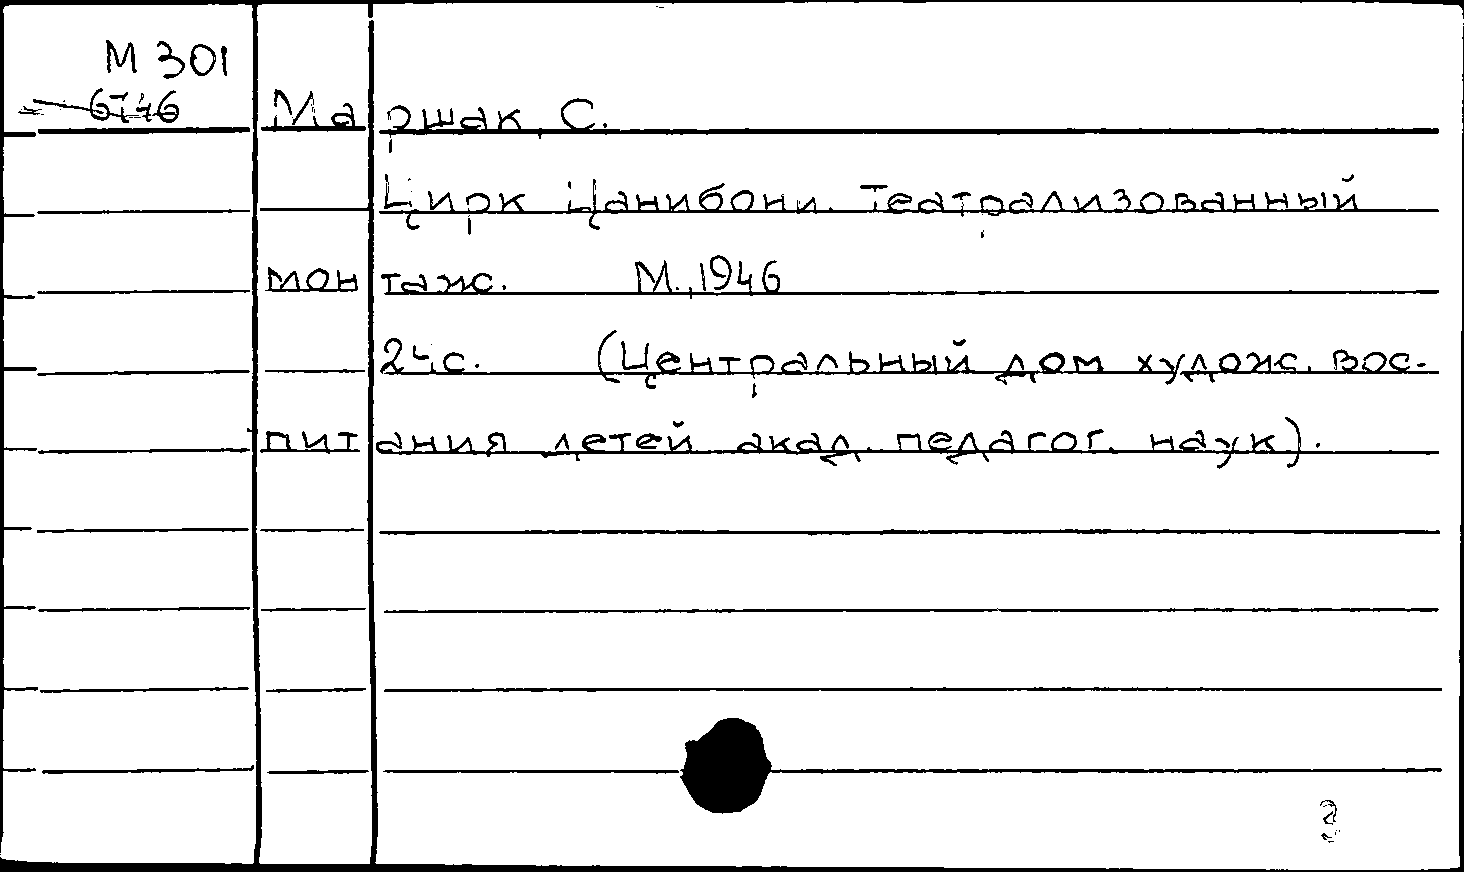 М 301
6746
Маршак, С.
Цирк Цанибони. Театрализованный
монтаж. М., 1946
24с. (Центральный дом худож. вос-
питания детей акад. педагог. наук).